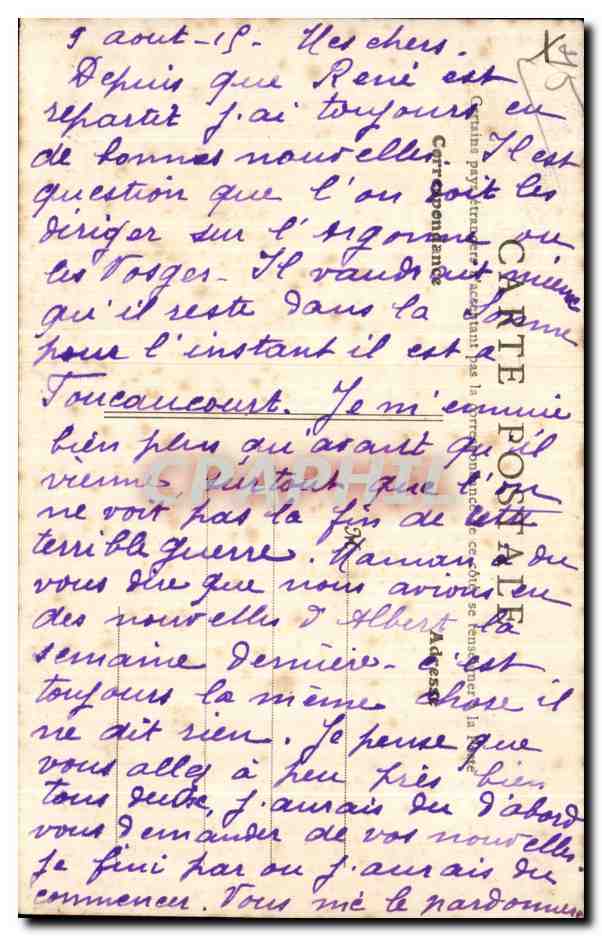 9 aout - 15 - Mes chers.
Depuis que René est
repartit j'ai toujours eu
de bonnes nouvelles. Il est
question que l'on doit les
diriger sur l'Argonne ou
les Vosges - Il vaudrait mieux
qu'il reste dans la Somme
pour l'instant il est a
Foucaucourt. Je m'ennuie
bien plus qu'avant qu'il
vienne, surtout que l'on
ne voit pas la fin de cette
terrible guerre. Maman a du
vous dire que nous avions eu
des nouvelles d'Albert la
semaine dernière - c'est
toujours la même chose il
ne dit rien. Je pense que
vous allez à peu près bien
tous deux, j'aurais du d'abord
vous demander de vos nouvelles
je fini par ou j'aurais du
commencer. Vous me le pardonnerez
CARTE POSTALE
Certains pays étrangers n'acceptant pas la correspondance de ce côté, se renseigner à la Poste
Correspondance
Adresse
M
CPAPHIL